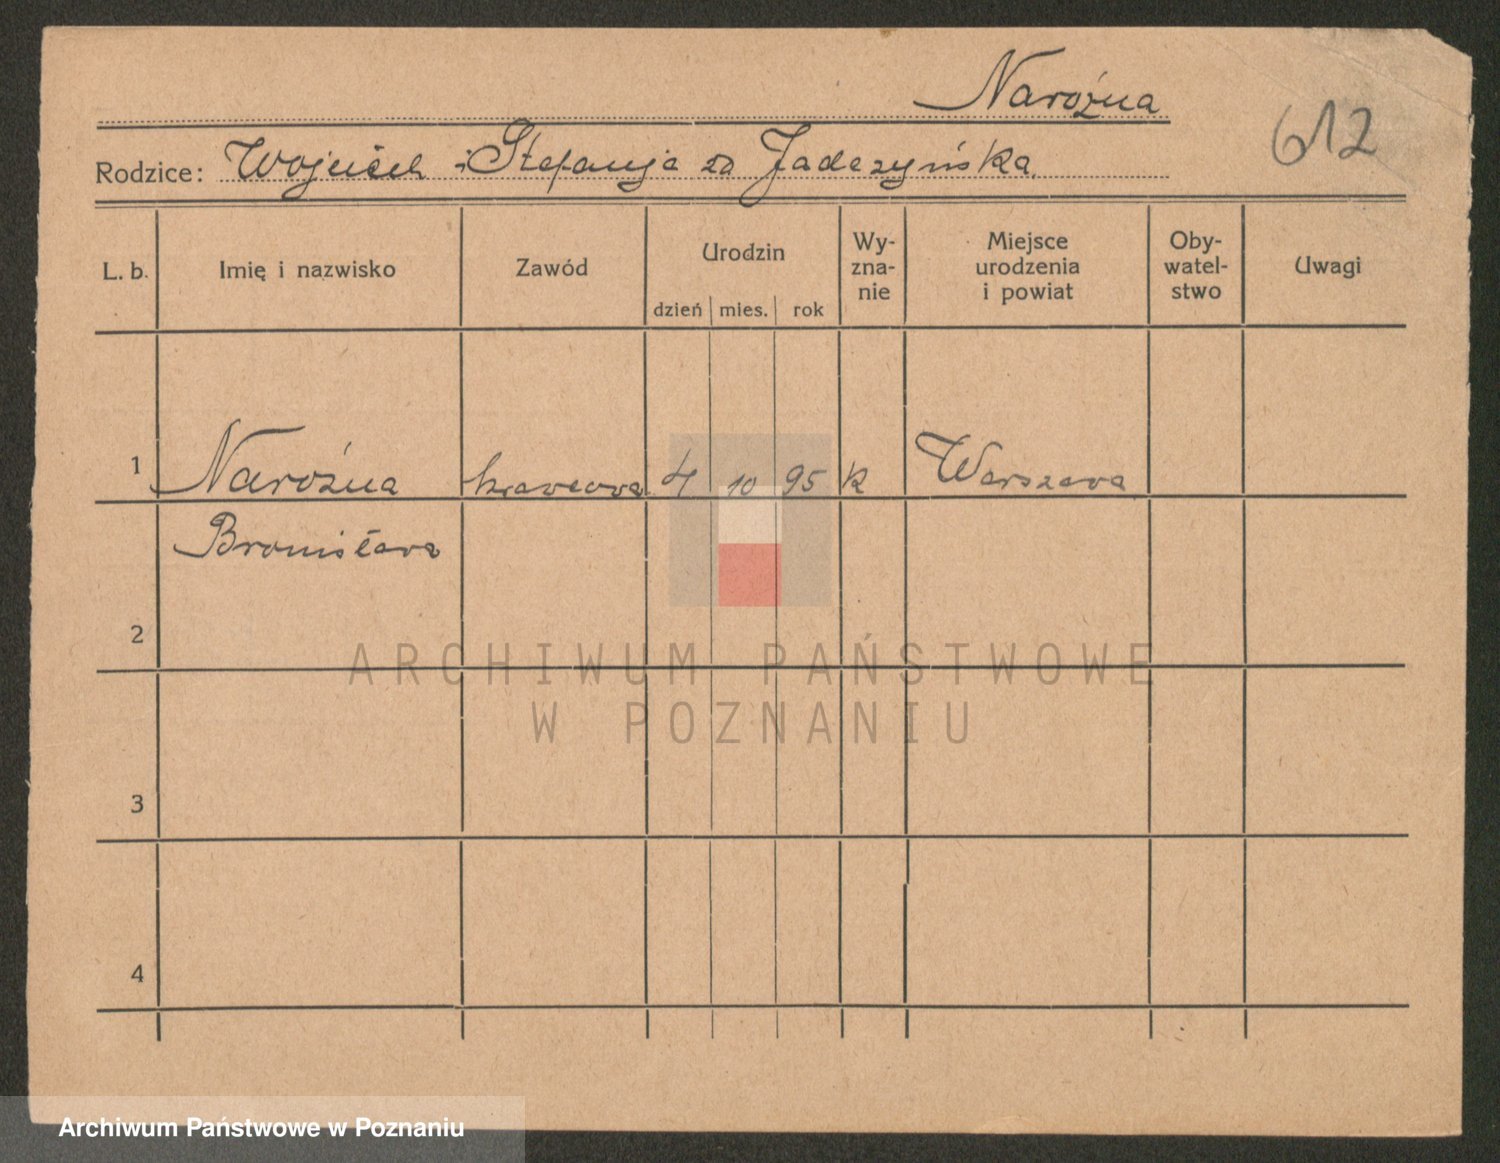 Narożna
612
Rodzice: Wojciech i Stefanja zd Jadczyńska
L. b. Imię i nazwisko Zawód Urodzin dzień mies. rok Wy-zna-nie Miejsce urodzenia i powiat Oby-watel-stwo Uwagi
1 Narożna krawcowa 4 10 95 k Warszawa
Bronisława
2
ARCHIWUM PAŃSTWOWE
W POZNANIU
3
4
Archiwum Państwowe w Poznaniu